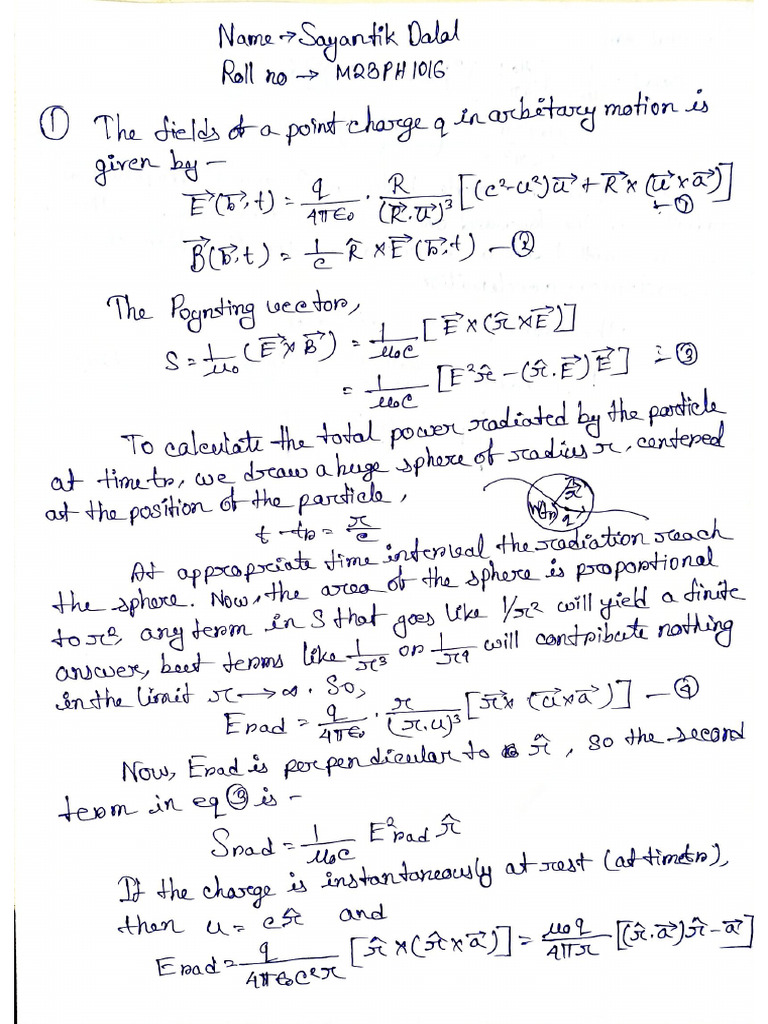 Name → Sayantik Dalal
Roll no → M23PH1016
① The fields of a point charge q in arbitary motion is
given by —
E⃗(r⃗,t) = q/4πϵ₀ · R/(R⃗.u⃗)³ [(c²-u²)u⃗ + R⃗×(u⃗×a⃗)] —①
B⃗(r⃗,t) = 1/c R̂ × E⃗(r⃗,t) —②
The Poynting vector,
S = 1/μ₀ (E⃗×B⃗) = 1/μ₀c [E⃗×(r̂×E⃗)]
= 1/μ₀c [E²r̂ - (r̂.E⃗)E⃗] —③
To calculate the total power radiated by the particle
at time tr, we draw a huge sphere of radius r, centered
at the position of the particle,
t - tr = r/c
At appropriate time interval the radiation reach
the sphere. Now, the area of the sphere is proportional
to r², any term in S that goes like 1/r² will yield a finite
answer, but terms like 1/r³ or 1/r⁴ will contribute nothing
in the limit r → ∞. So,
Erad = q/4πϵ₀ · r/(r.u)³ [r⃗× (u⃗×a⃗)] —④
Now, Erad is perpendicular to r̂, so the second
term in eq ③ is —
Srad = 1/μ₀c E²rad r̂
If the charge is instantaneously at rest (at time tr),
then u = cr̂ and
Erad = q/4πϵ₀c²r [r̂×(r̂×a⃗)] = μ₀q/4πr [(r̂.a⃗)r̂-a⃗]